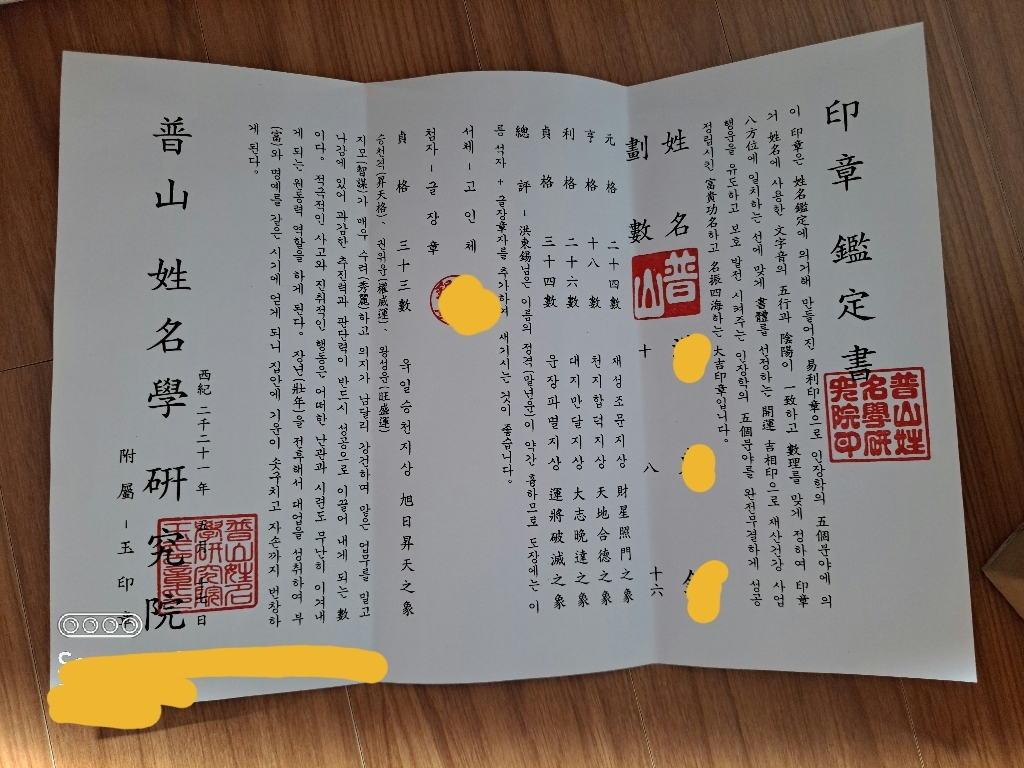 印章鑑定書
이 印章은 姓名鑑定에 의거해 만들어진 易利印章으로 인장학의 五個분야에 의
거 姓名에 사용한 文字音의 五行과 陰陽이 一致하고 數理를 맞게 정하여 印章
八方位에 일치하는 선에 맞게 書體를 선정하는 開運 吉相印으로 재산건강 사업
행운을 유도하고 보호 발전 시켜주는 인장학의 五個분야를 완전무결하게 성공
정립시킨 富貴功名하고 名振四海하는 大吉印章입니다.
普山姓
名學研
究院印
姓名
劃數 十 八 十六
普山
元格 二十四數 재성조문지상 財星照門之象
亨格 十八數 천지합덕지상 天地合德之象
利格 二十六數 대지만달지상 大志晩達之象
貞格 三十四數 운장파멸지상 運將破滅之象
總評 - 洪東錫님은 이름의 정격(말년운)이 약간 흉하므로 도장에는 이
름 석자 + 글장章자를 추가하여 새기시는 것이 좋습니다.
서체 - 고인체
첨자 - 글장章
貞格 三十三數 욱일승천지상 旭日昇天之象
승천격(昇天格), 권위운(權威運), 왕성운(旺盛運)
지모(智謀)가 매우 수려(秀麗)하고 의지가 남달리 강건하며 맡은 업무를 밀고
나감에 있어 과감한 추진력과 판단력이 반드시 성공으로 이끌어 내게 되는 數
이다. 적극적인 사고와 진취적인 행동은 어떠한 난관과 시련도 무난히 이겨내
게 되는 원동력 역할을 하게 된다. 장년(壯年)을 전후해서 대업을 성취하여 부
(富)와 명예를 같은 시기에 얻게 되니 집안에 기운이 솟구치고 자손까지 번창하
게 된다.
西紀 二千二十一年 五月 十七日
普山姓名學硏究院
附屬 - 玉印章